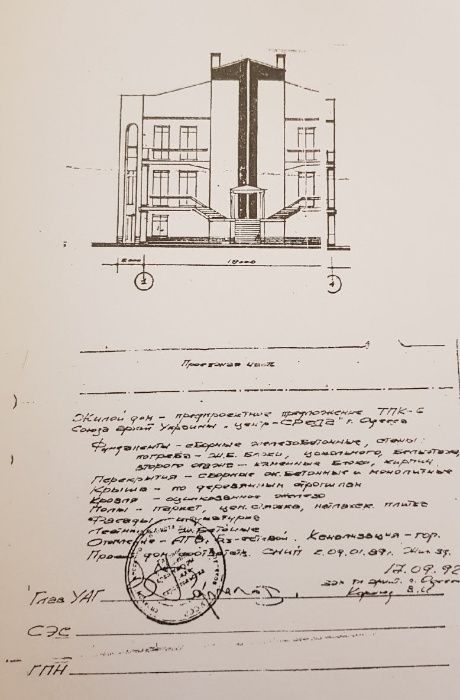 2000
18000
3
4
Проезжая часть
Жилой дом – предпроектные предложение ТПК-6
Союза арх. Украины - центр "СРЕДА" г. Одесса
Фундаменты – сборные железобетонные, стены:
погреба – Ж.Б. Блоки, цокольного, бельэтажа,
второго этажа – каменные блоки, кирпич
Перекрытия – сборные ж. бетонные и монолитные
Крыша – по деревянным стропилам
Кровля – оцинкованное железо
Полы – паркет, цем. стяжка, метлахск. плитка
Фасады – штукатурка
Лестницы – ж. бетонные
Отопление – АГВ, газ-сетевой. Канализация – гор.
Проект дом СНИП 2.09.01.89г. Жил. зд.
17.09.92
Глав УАГ
СЭС
ГПН